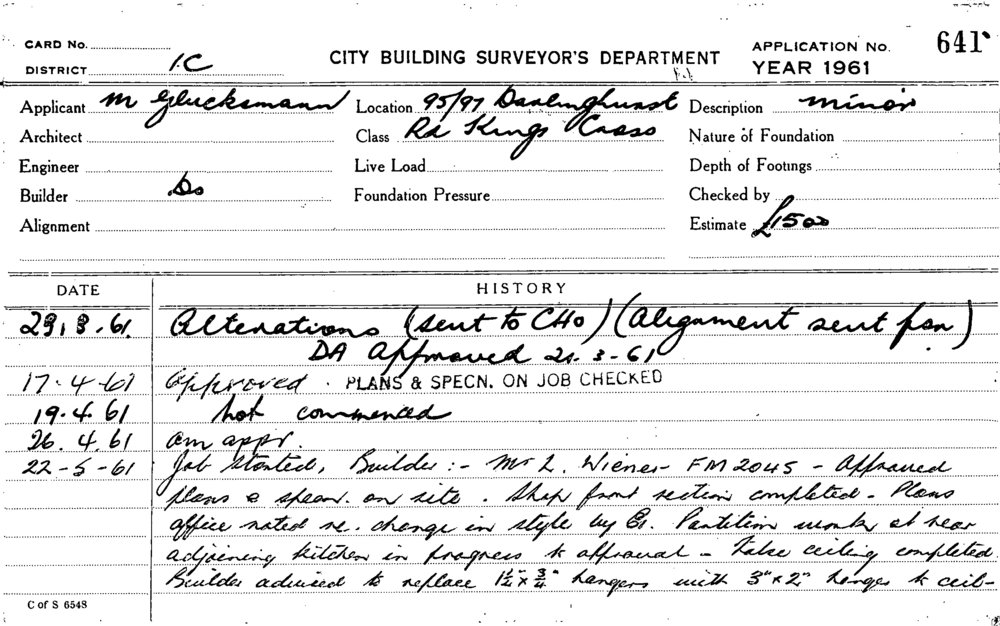 CARD No.
DISTRICT 1C
CITY BUILDING SURVEYOR'S DEPARTMENT
APPLICATION No. 641
YEAR 1961
Applicant M Glucksmann Location 95/97 Darlinghurst Description Minor
Architect Class Rd Kings Cross Nature of Foundation
Engineer Live Load Depth of Footings
Builder Do Foundation Pressure Checked by
Alignment Estimate £1500
DATE HISTORY
23.3.61 Alterations (sent to CHO) (Alignment sent for)
DA Approved 21.3-61
17.4-61 Approved. PLANS & SPECN. ON JOB CHECKED
19.4.61 Not commenced
26.4.61 am appr.
22-5-61 Job started, Builder :- Mr L. Wiener FM 2045 - Approved
plans & specn. on site. Shop front section completed - Plans
office noted re. change in style by Partition work at rear
adjoining kitchen in progress to approval - False ceiling completed.
Builder advised to replace 1½" x ¾" hangers with 3" x 2" hanger to ceil-
C of S 6548